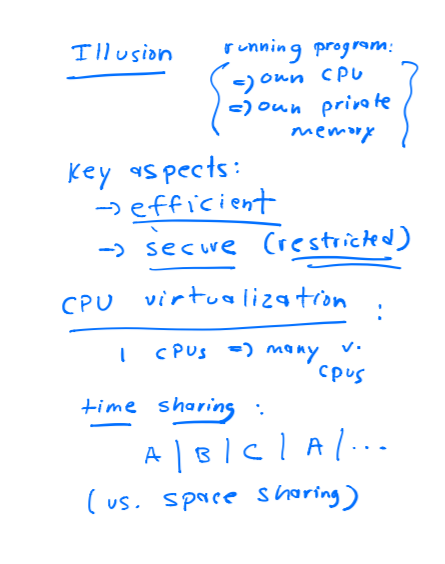 Illusion running program:
=> own CPU
=> own private
memory
Key aspects:
-> efficient
-> secure (restricted)
CPU virtualization :
1 CPUs => many v.
CPUs
time sharing :
A | B | C | A | ...
(vs. space sharing)